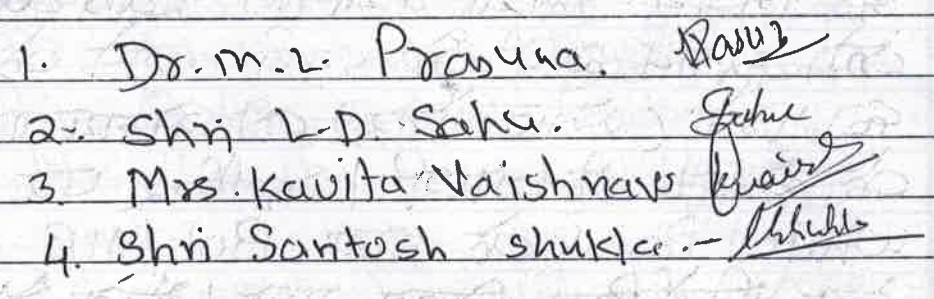 1. Dr. M. L. Prasuna.
2. Shri L.D. Sahu. Sahu
3. Mrs. Kavita Vaishnav
4. Shri Santosh Shukla. -